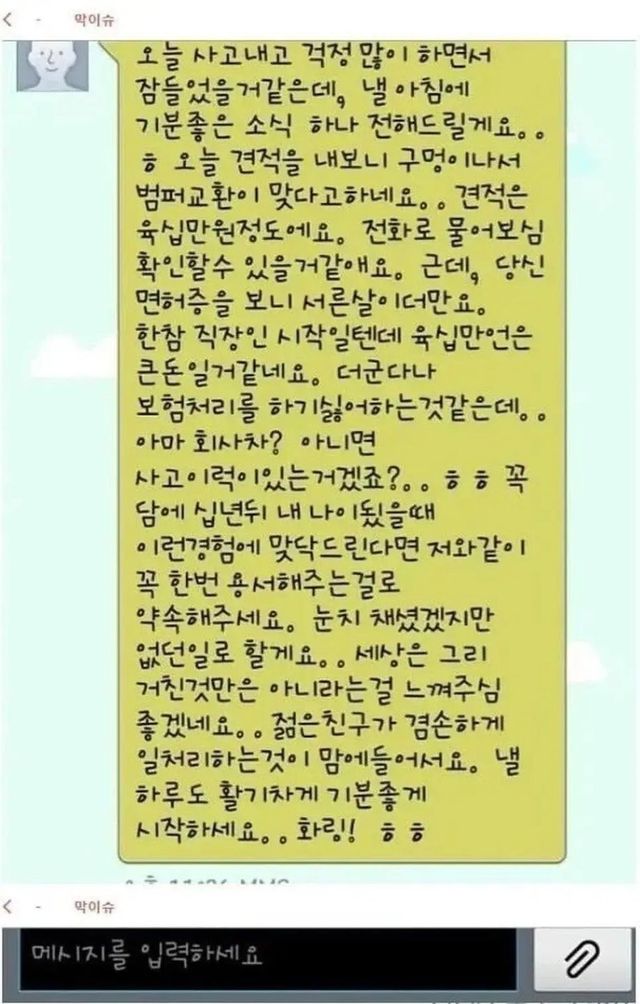 막이슈
오늘 사고내고 걱정많이 하면서
잠들었을거같은데, 낼 아침에
기분좋은 소식 하나 전해드릴게요..
ㅎ 오늘 견적을 내보니 구멍이나서
범퍼교환이 맞다고하네요.. 견적은
육십만원정도에요. 전화로 물어보심
확인할수 있을거같애요. 근데, 당신
면허증을 보니 서른살이더만요.
한참 직장인 시작일텐데 육십만언은
큰돈일거같네요. 더군다나
보험처리를 하기싫어하는것같은데..
아마 회사차? 아니면
사고이력이있는거겠죠?.. ㅎㅎ 꼭
담에 십년뒤 내 나이됬을때
이런경험에 맞닥드린다면 저와같이
꼭 한번 용서해주는걸로
약속해주세요. 눈치 채셨겠지만
없던일로 할게요.. 세상은 그리
거친것만은 아니라는걸 느껴주심
좋겠네요.. 젊은친구가 겸손하게
일처리하는것이 맘에들어서요. 낼
하루도 활기차게 기분좋게
시작하세요.. 화링! ㅎㅎ
막이슈
메시지를 입력하세요